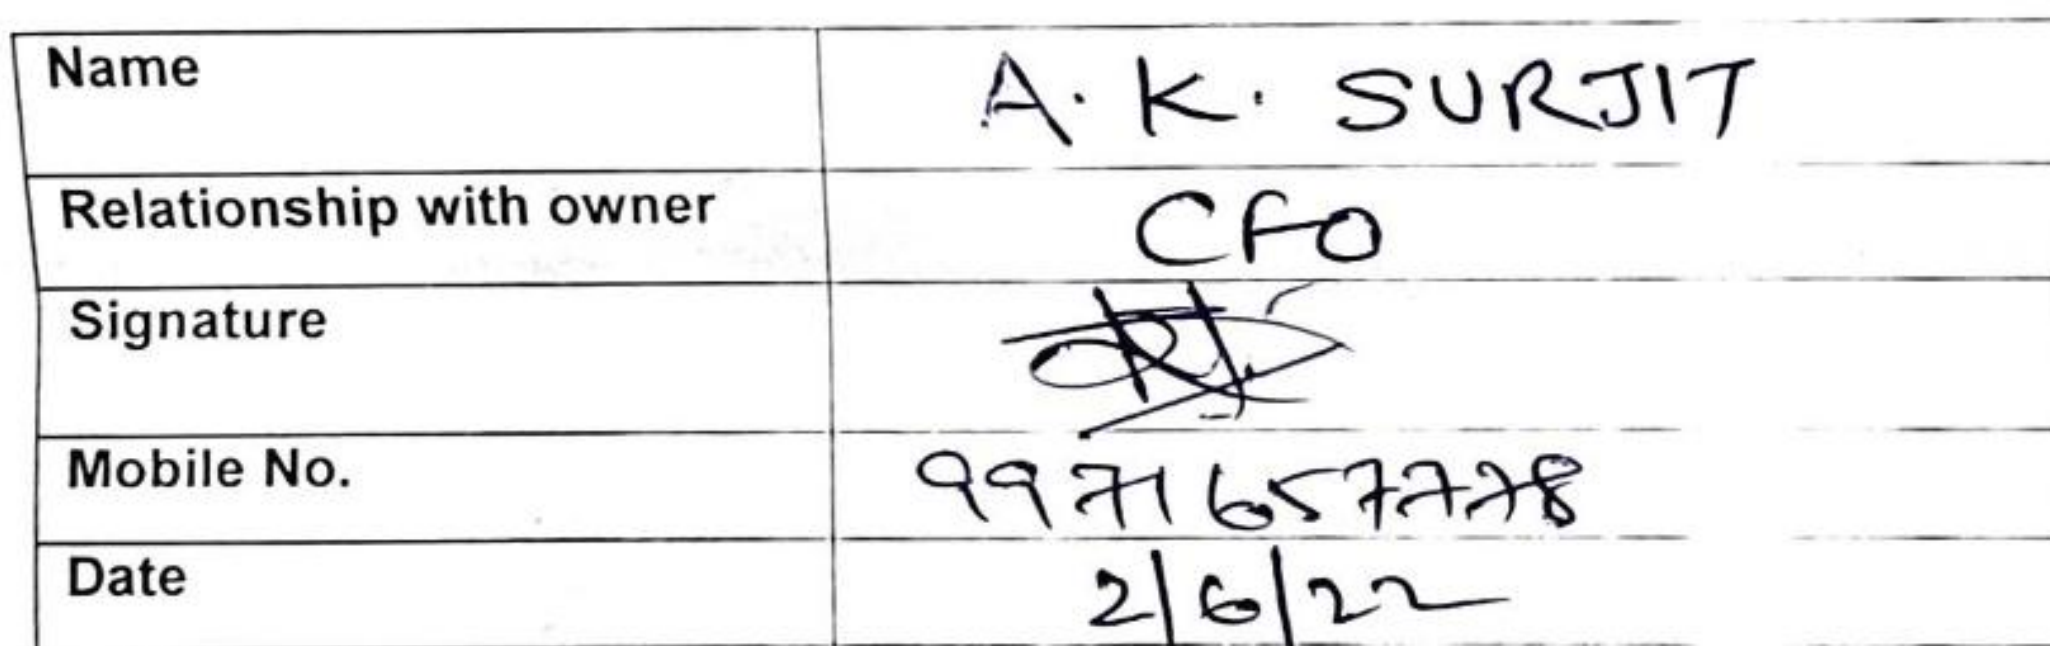 Name A. K. SURJIT
Relationship with owner CFO
Signature
Mobile No. 9971657778
Date 2/6/22